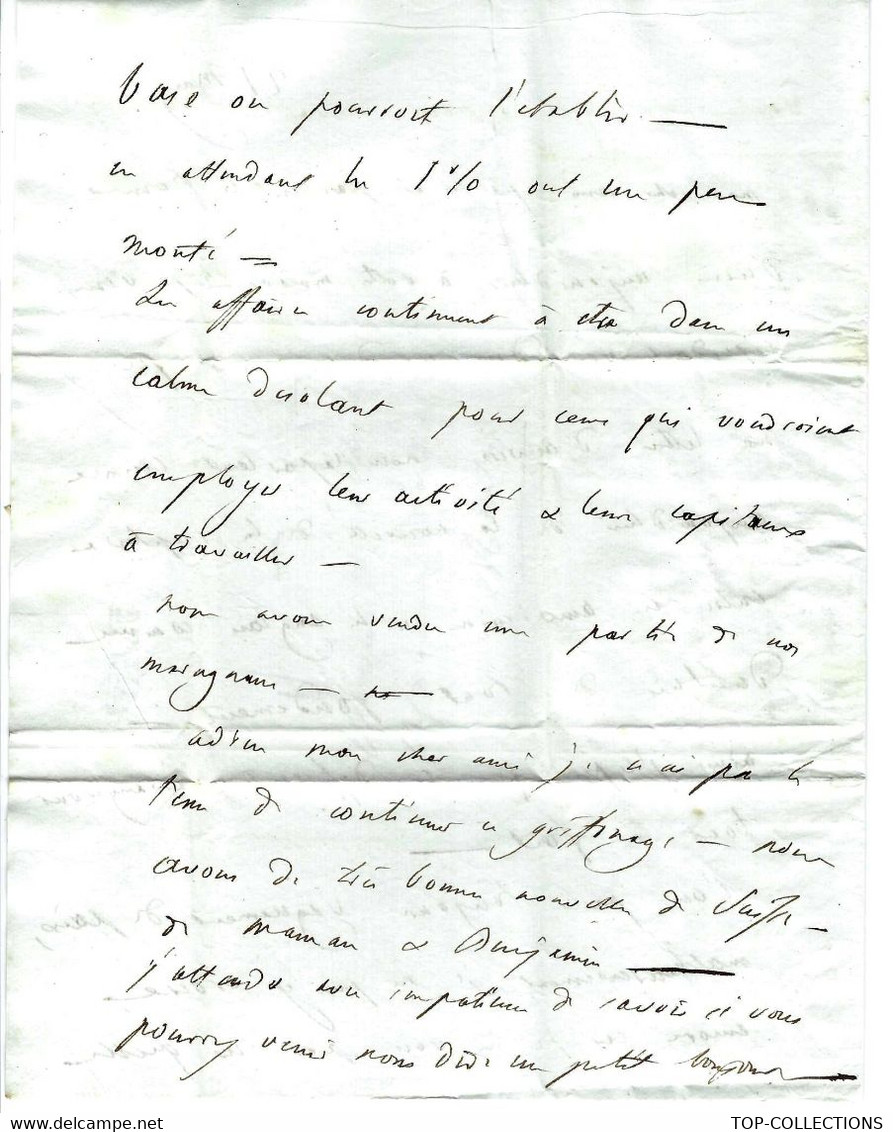 base on pourroit l'etablir —
en attendant les 5 % ont un peu
monté =
Les affaires continuent à etre dans un
calme desolant pour ceux qui voudroient
employer leur activité & leurs capitaux
à travailler —
nous avons vendu une partie de nos
maragnans —
adieu mon cher ami je n'ai pas le
tems de continuer ce griffonage — nous
avons de très bonnes nouvelles de Suisse —
de maman & Benjamin —
j'attends avec impatience de savoir si vous
pourrez venir nous dire un petit bonjour —
TOP-COLLECTIONS